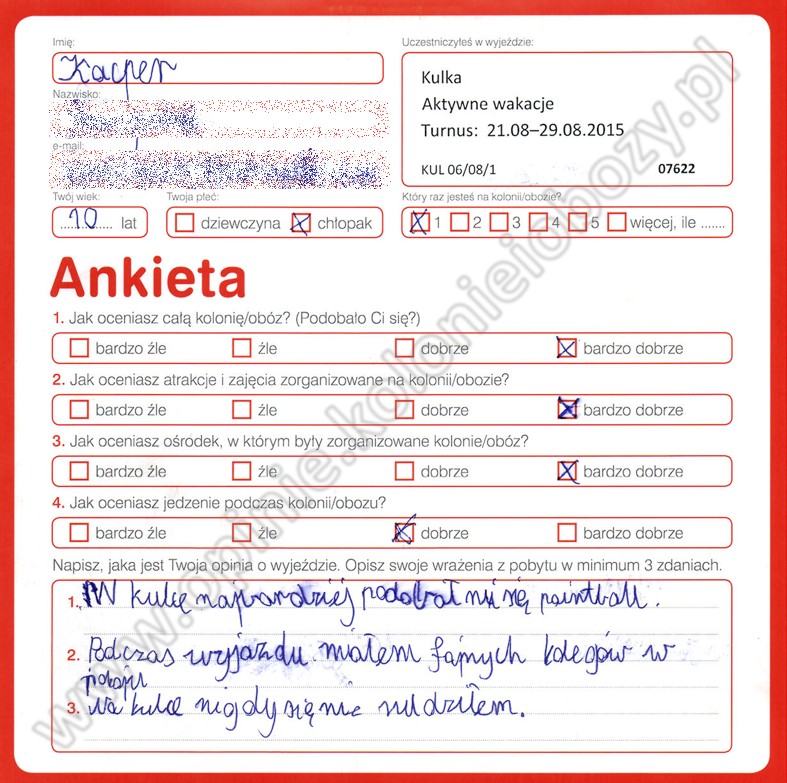 Imię:
Uczestniczyłeś w wyjeździe:
Kacper
Kulka
Nazwisko:
Aktywne wakacje
Turnus: 21.08–29.08.2015
e-mail:
KUL 06/08/1 07622
Twój wiek: Twoja płeć: Który raz jesteś na kolonii/obozie?
10 lat dziewczyna chłopak 1 2 3 4 5 więcej, ile .......
Ankieta
1. Jak oceniasz całą kolonię/obóz? (Podobało Ci się?)
bardzo źle źle dobrze bardzo dobrze
2. Jak oceniasz atrakcje i zajęcia zorganizowane na kolonii/obozie?
bardzo źle źle dobrze bardzo dobrze
3. Jak oceniasz ośrodek, w którym były zorganizowane kolonie/obóz?
bardzo źle źle dobrze bardzo dobrze
4. Jak oceniasz jedzenie podczas kolonii/obozu?
bardzo źle źle dobrze bardzo dobrze
Napisz, jaka jest Twoja opinia o wyjeździe. Opisz swoje wrażenia z pobytu w minimum 3 zdaniach.
1. W kulce najbardziej podobał mi się paintball.
2. Podczas wyjazdu miałem fajnych kolegów w
pokoju
3. Na kulce nigdy się nie nudziłem.
www.opinie.kolonieiobozy.pl